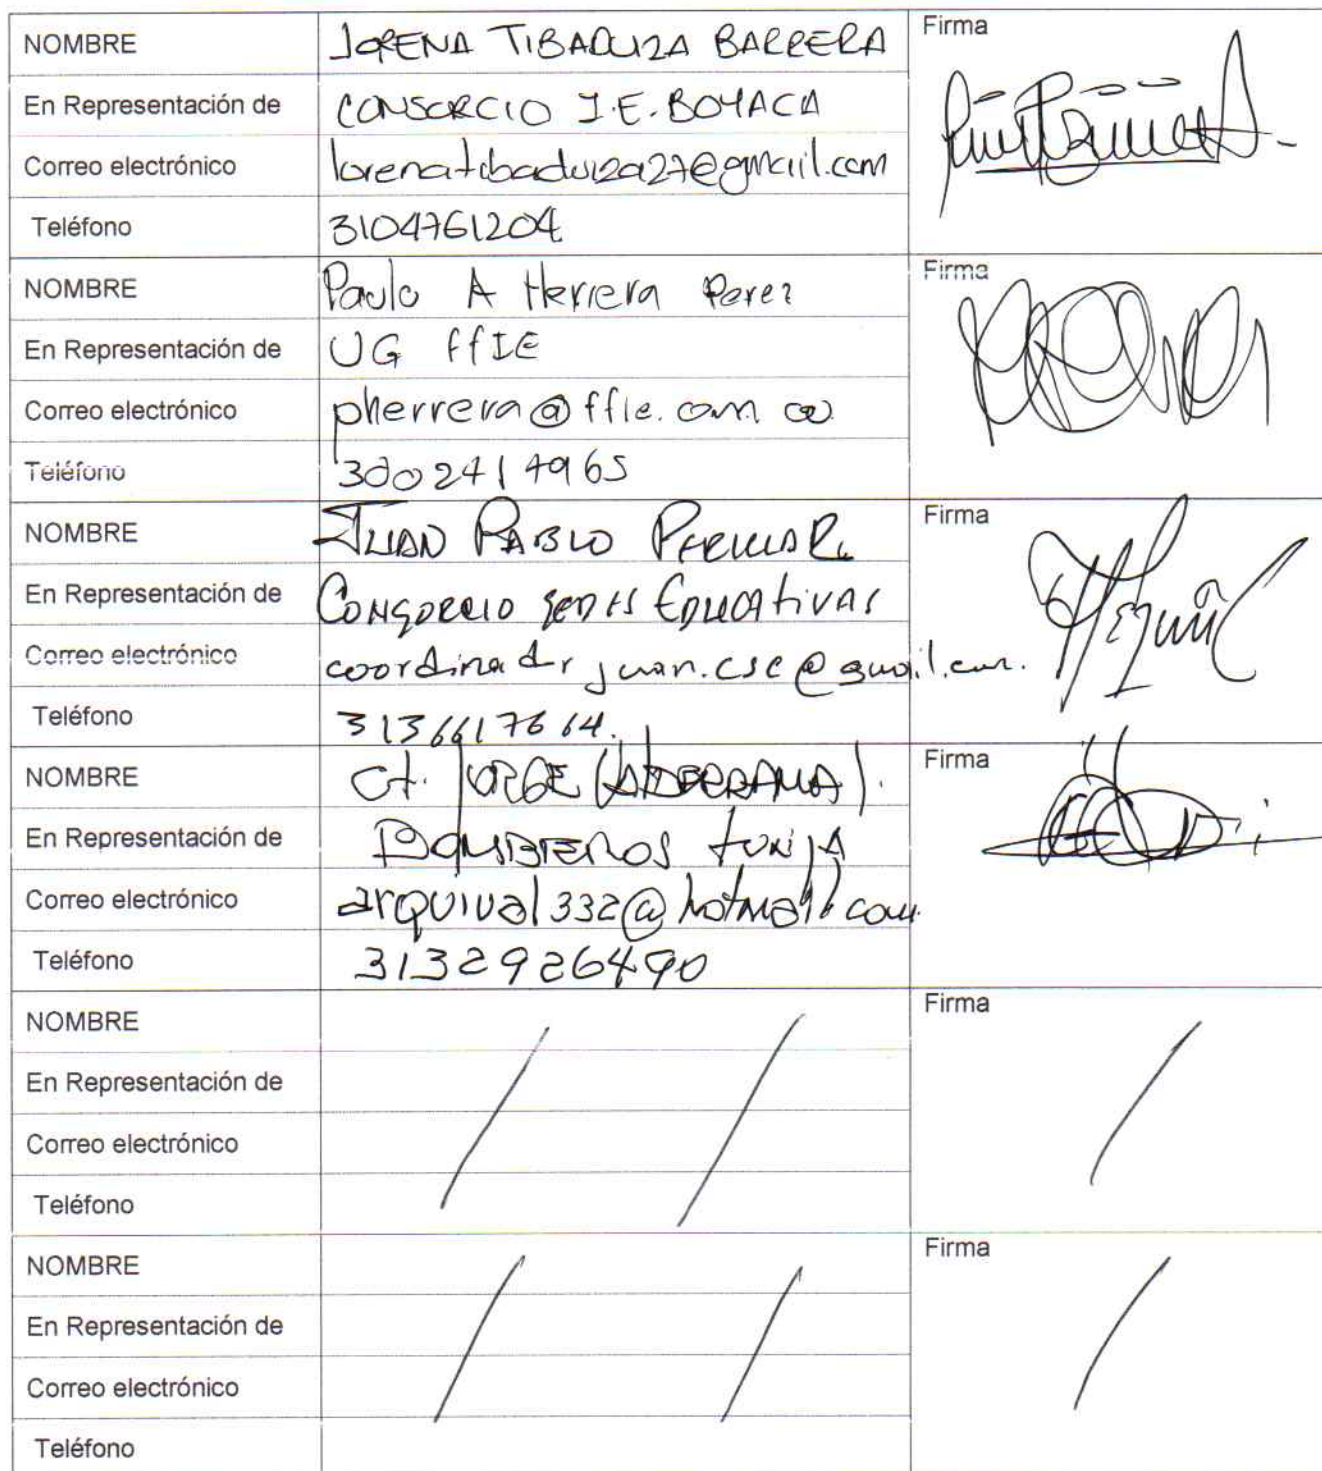 NOMBRE LORENA TIBADUIZA BARRERA Firma
En Representación de CONSORCIO I.E. BOYACA
Correo electrónico lorenatibaduiza27@gmail.com
Teléfono 3104761204
NOMBRE Paulo A Herrera Perez Firma
En Representación de UG ffIE
Correo electrónico pherrera@ffie.com.co
Teléfono 3002414965
NOMBRE JUAN PABLO Firma
En Representación de CONSORCIO SEDES EDUCATIVAS
Correo electrónico coordinador juan.cse@gmail.com.
Teléfono 3136617664.
NOMBRE Ct. JORGE VALDERRAMA Firma
En Representación de BOMBEROS TUNJA
Correo electrónico arquival332@hotmail.com
Teléfono 3132926490
NOMBRE Firma
En Representación de
Correo electrónico
Teléfono
NOMBRE Firma
En Representación de
Correo electrónico
Teléfono